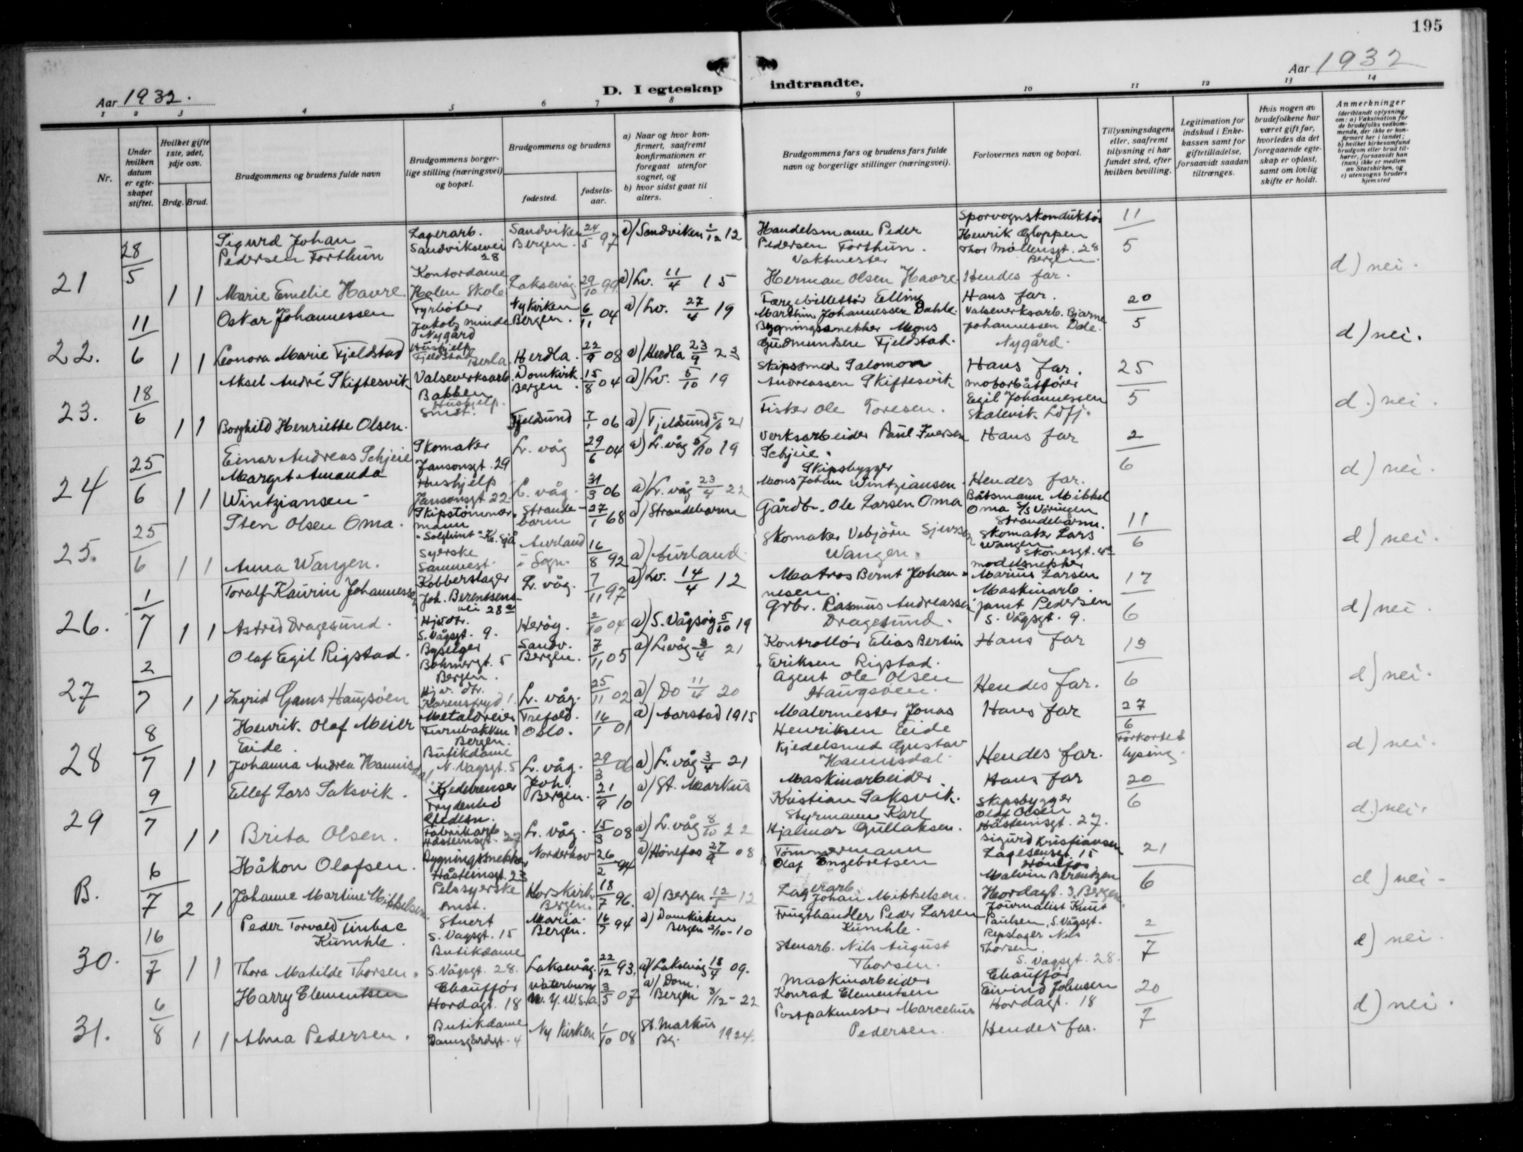 195
Aar 1932.
D. I egteskap indtraadte.
Aar 1932
1 2 3 4 5 6 7 8 9 10 11 12 13 14
Nr.
Under hvilken datum er egteskapet stiftet.
Hvilket gifte 1ste, 2det, 3dje osv.
Brdg. Brud.
Brudgommens og brudens fulde navn
Brudgommens borgerlige stilling (næringsvei) og bopæl.
Brudgommens og brudens
fødested.
fødselsaar.
a) Naar og hvor konfirmert, saafremt konfirmationen er foregaat utenfor sognet, og
b) hvor sidst gaat til alters.
Brudgommens fars og brudens fars fulde navn og borgerlige stillinger (næringsvei).
Forlovernes navn og bopæl.
Tillysningsdagene eller, saafremt tillysning ei har fundet sted, efter hvilken bevilling.
Legitimation for indskud i Enkekassen samt for giftetilladelse, forsaavidt saadan tiltrænges.
Hvis nogen av brudefolkene har været gift før, hvorledes da det foregaaende egteskap er opløst, samt om lovlig skifte er holdt.
Anmerkninger
21 28/5 1 1
Sigurd Johan Pedersen Forthun
Lagerarb. Sandviksvei 28
Sandviken Bergen. 24/5 97
a) Sandviken 1/12 12
Handelsmann Peder Pedersen Forthun.
Sporvognskonduktør Henrik Gloppen
Thor Møllersgt. 28 Bergen.
11/5
d) nei.
Marie Emelie Havre
Kontordame Holen Skole
Laksevåg 29/10 99
a) Lv. 11/4 15
Vaktmester Herman Olsen Havre
Hendes far.
22. 11/6 1 1
Oskar Johannessen
Fyrbøter Jakobsminde Nygård
Nykirken Bergen. 6/11 04
a) Lv. 27/4 19
Færgebillettør Elling Marthin Johannessen Dahle
Hans far.
20/5
d) nei.
Leonora Marie Fjeldstad
Hushjelp Fjeldstad Herdla
Herdla. 22/9 08
a) Herdla 23/9 23
Bygningssnekker Mons Gudmundsen Fjeldstad.
Valseverksarb. Bjarne Johannessen Dale. Nygård.
23. 18/6 1 1
Aksel André Skiftesvik
Valseverksarb. Bakken
Domkirk. Bergen. 15/8 04
a) Lv. 5/10 19
Skipssmed Salomon Andreassen Skiftesvik
Hans far.
25/5
d.) nei.
Borghild Henriette Olsen.
Hushjelp. Smst.
Fjeldsund 7/1 06
a) Fjeldsund 5/6 21
Fisker Ole Toresen.
Motorbåtfører Egil Johannessen Skålevik
24 25/6 1 1
Einar Andreas Schjeie
Skomaker Jansonsgt. 29
L. våg 29/6 04
a) L. våg 5/10 19
Verksarbeider Paul Iversen Schjeie.
Hans far
2/6
d) nei.
Margit Amanda Wintziansen
Hushjelp Jansonsgt 22
L. våg. 31/3 06
a) L. våg 23/4 22
Skipsbygger Mons Johan Wintziansen.
Hendes far.
25. 25/6 1 1
Sten Olsen Oma.
Skipstømmermann
Strandebarm 27/1 68
a) Strandebarm
Gårdbr. Ole Larsen Oma
Båtsmann Mikkel Oma Strandebarm.
11/6
d) nei.
Anna Wangen.
Syerske Sammest.
Aurland i Sogn. 16/8 92
a) Aurland
Skomaker Vebjørn Sjursen Wangen.
Skomaker Lars Wangen
26. 1/7 1 1
Toralf Kaurin Johannessen
Kobberslager Joh. Berentsens vei 28
L. våg. 7/11 97
a) Lv. 14/4 12
Matros Bernt Johannesen.
Modelsnekker Marius Larsen
17/6
d) nei.
Astrid Dragesund.
S. Vågsgt. 9.
Herøy. 2/10 04
a) S. Vågsøy 5/10 19
Grbr. Rasmus Andreassen Dragesund.
Maskinarb. Janut Pedersen S. Vågsgt. 9.
27 2/7 1 1
Olaf Egil Rigstad.
Bøhmergt. 5 Bergen.
Sandv. Bergen. 7/11 05
a) L. våg 3/4 21
Kontrollør Elias Bertin Eriksen Rigstad.
Hans far
19/6
d) nei.
Ingrid Gams Haugsøen
L. våg. 25/11 02
a) Do 11/4 20
Agent Ole Olsen Haugsøen.
Hendes far.
28 8/7 1 1
Henrik Olaf Meier Eide.
Metaldreier Bergen.
Trefold. Oslo. 16/1 01
a) Aarstad 1915
Malermester Jonas Henriksen Eide
Hans far
27/6
Forkortet lysing.
d) nei.
Johanna Andrea Hannisdal
Butikdame N. Vågsgt. 5
L. våg. 29/3
a) L. våg 3/4 21
Kjedelsmed Gustav Hannisdal.
Hendes far.
29 9/7 1 1
Ellef Lars Saksvik.
Kjedelrenser Frydenbø
Joh. Bergen. 21/9 10
a) St. Markus
Maskinarbeider Kristian Saksvik.
Hans far
20/6
d.) nei.
Brita Olsen.
Fabrikarb. Håsteinsgt. 27
L. våg. 15/3 08
a) L. våg 8/10 22
Styrmann Karl Hjalmar Gullaksen.
Skipsbygger Olaf Olsen Håsteinsgt. 27.
B. 6/7 2 1
Håkon Olafsen.
Bygningssnekker Håsteinsgt. 23
Norderhov 26/2 94
a) Hønefos 27/9 08
Tømmermann Olaf Engebretsen
Sigurd Kristiansen
21/6
d) nei
Johanne Martine Mikkelsen
Pelssyerske Smst.
Korskirk. Bergen. 18/7 96.
a) Bergen 12
Lagerarb. Johan Mikkelsen.
Malvin Berentzen Hordagt. 3, Bergen
30. 16/7 1 1
Peder Torvald Tinbac Kumhle.
Stuert S. Vågsgt. 15
Maria. Bergen. 94
a) Domkirken Bergen 2/10-10
Frugthandler Peder Larsen Kumhle.
Journalist Knut Paulsen, S. Vågsgt.
2/7
d) nei.
Thora Matilde Thorsen.
Butikdame S. Vågsgt. 28.
Laksevåg. 22/12 93.
a) Laksevåg 18/9 09.
Stenarb. Nils August Thorsen.
Repslager Nils Thorsen. S. Vågsgt. 28.
31. 6/8 1 1
Harry Clementsen
Chauffør Hordagt. 18
Waterbury N.Y. U.S.A. 3/5 07
a) Dom. Bergen 3/12-22
Maskinarbeider Konrad Clementsen
Chauffør Eivind Johnsen Hordagt. 18
20/7
d) nei.
Alma Pedersen.
Butikdame Damsgårdsgt. 4
Ny Kirken 1/10 08
St. Markus Bg. 1924.
Postpakmester Marcelius Pedersen.
Hendes far.